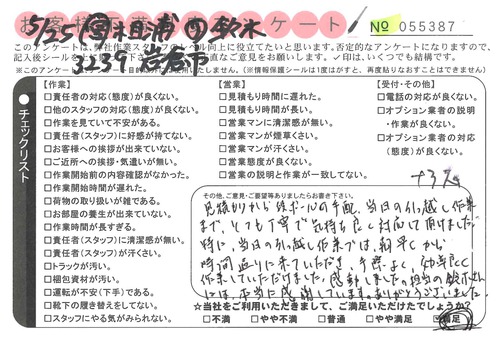 お客様アンケート
№ 055387
5/25
3239 岩倉市
このアンケートは、弊社作業スタッフのレベル向上に役立てたいと思います。否定的なアンケートになりますので、
記入後シールを
直なご意見をお願いします。✓印は、いくつでも結構です。
(※情報保護シールは1度がはすと、再度貼りなおすことはできません)
チェックリスト
【作業】
□責任者の対応(態度)が良くない。
□他のスタッフの対応(態度)が良くない。
□作業を見ていて不安がある。
□責任者(スタッフ)に好感が持てない。
□お客様への挨拶が出来ていない。
□ご近所への挨拶・気遣いが無い。
□作業開始前の内容確認がなかった。
□作業開始時間が遅れた。
□荷物の取り扱いが雑である。
□お部屋の養生が出来ていない。
□作業時間が長すぎる。
□責任者(スタッフ)に清潔感が無い。
□責任者(スタッフ)が汗くさい。
□トラックが汚い。
□梱包資材が汚い。
□運転が不安(下手)である。
□靴下の履き替えをしてない。
□スタッフにやる気がみられない。
【営業】
□見積もり時間に遅れた。
□見積もり時間が長い。
□営業マンに清潔感が無い。
□営業マンが煙草くさい。
□営業マンが汗くさい。
□営業態度が良くない。
□営業の説明と作業が一致してない。
【受付・その他】
□電話の対応が良くない。
□オプション業者の説明
・作業が良くない。
□オプション業者の対応
(態度)が良くない。
その他、ご意見・ご要望等ありましたらお書き下さい。
見積りから段ボールの手配、当日の引っ越し作業
まで、とても丁寧で気持ち良く対応して頂けました。
特に、当日の引っ越し作業では、朝早くから
時間通りに来ていただき、手際よく効率良く
作業していただけました。感動しました。担当の鈴木さん
には、本当に感謝しています。ありがとうございました。
☆当社をご利用いただきまして、ご満足いただけたでしょうか?
□不満 □やや不満 □普通 □やや満足 ☑満足